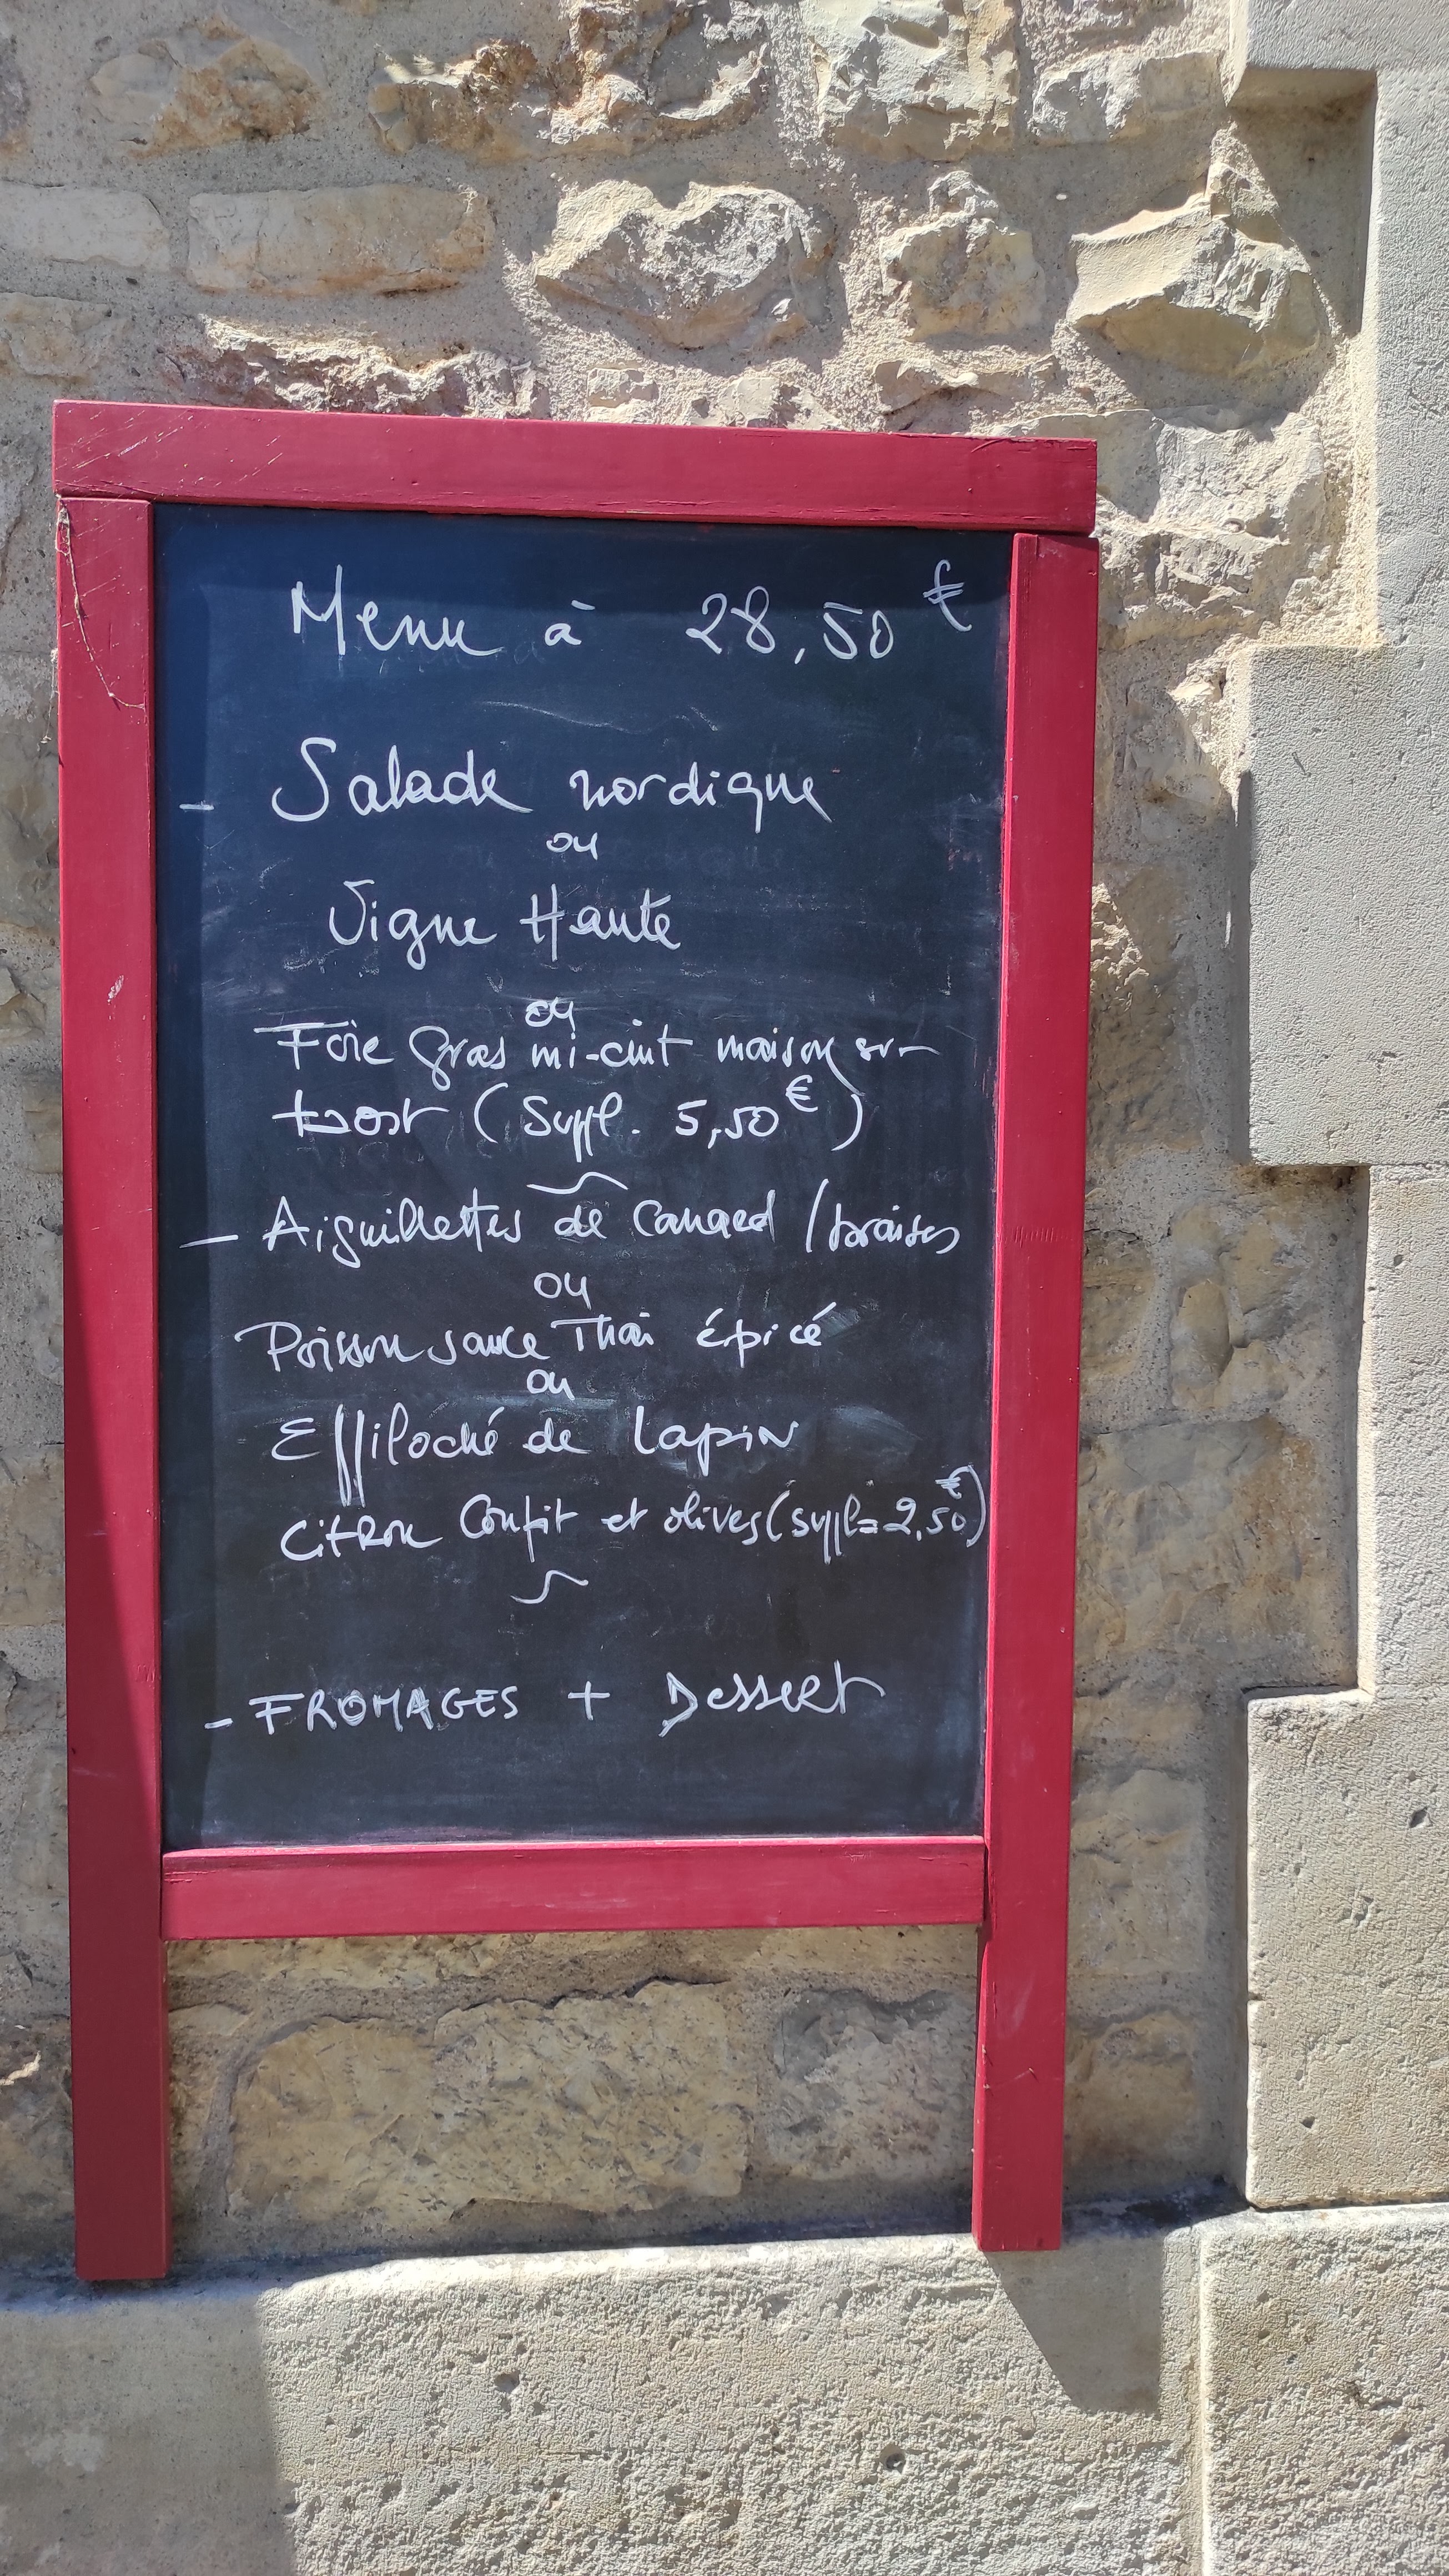 Menu à 28,50 €
- Salade nordique
ou
Vigne Haute
ou
Foie gras mi-cuit maison sur
toast (Suppl. 5,50 €)
- Aiguillettes de Canard / fraises
ou
Poisson sauce Thaï épicé
ou
Effiloché de Lapin
Citron Confit et olives (suppl = 2,50 €)
- FROMAGES + Dessert